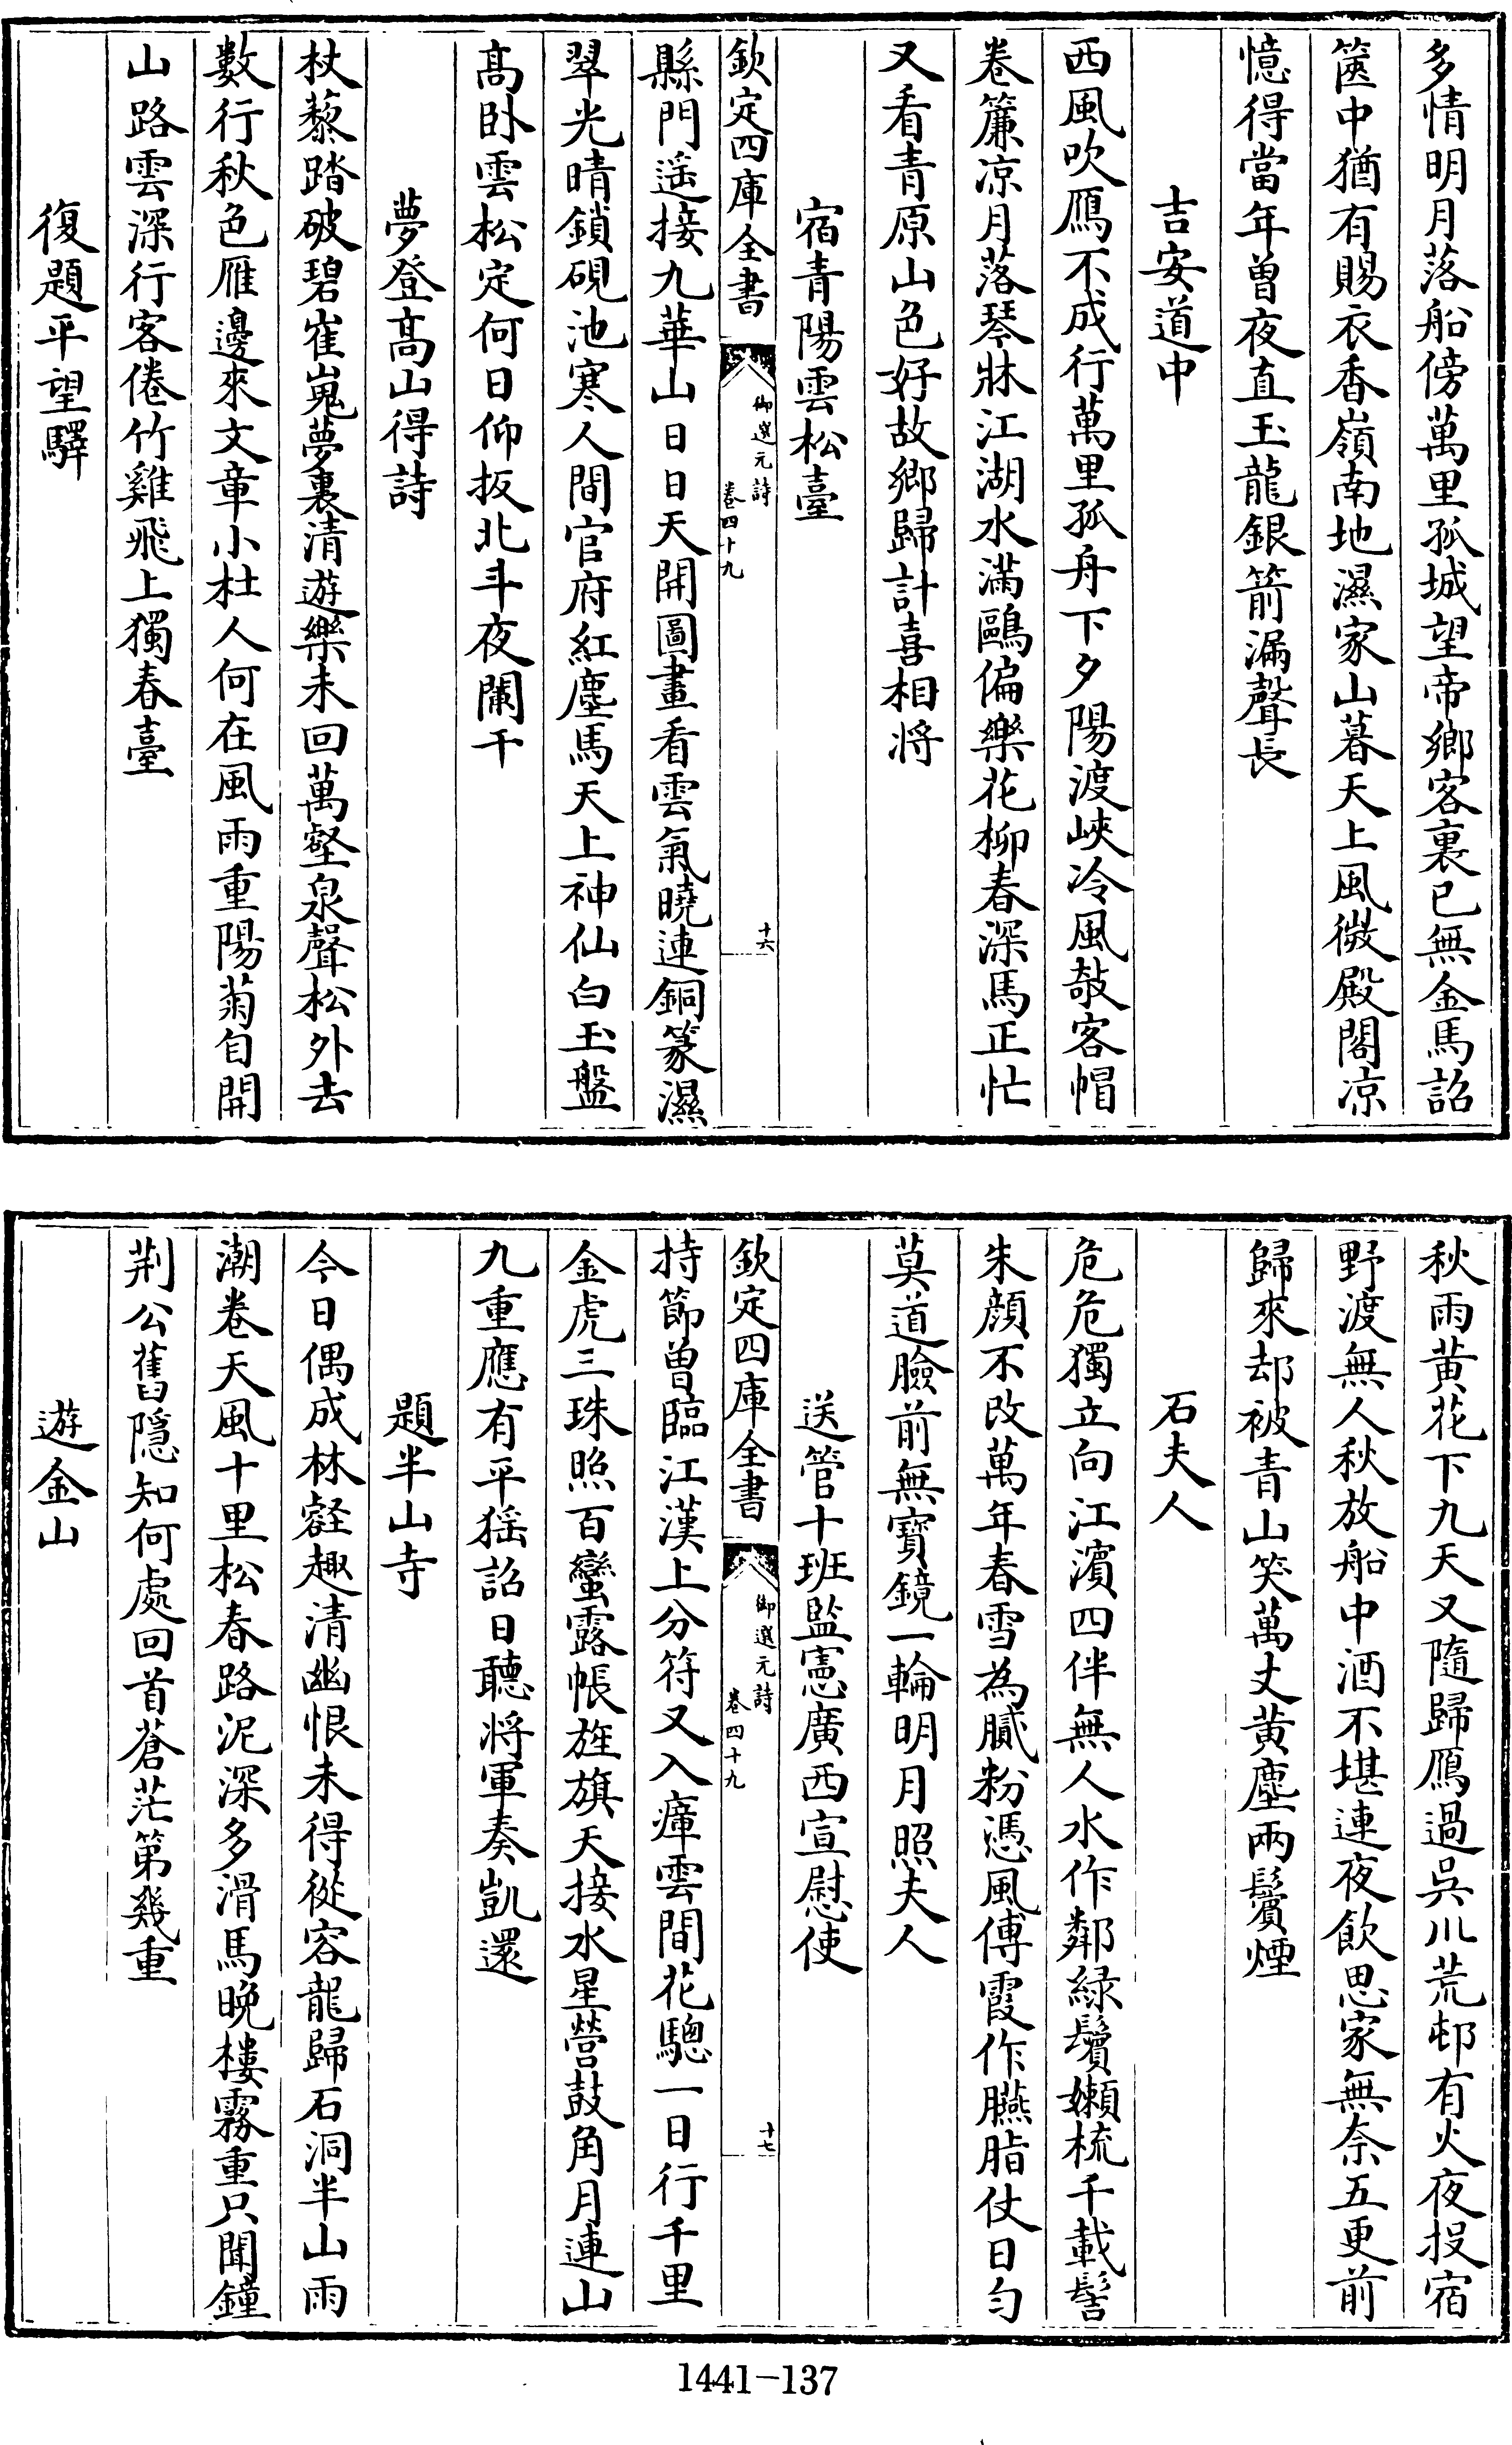 多情明月落船傍萬里孤城望帝鄉客裏已無金馬詔
篋中猶有賜衣香嶺南地濕家山暮天上風微殿閣凉
憶得當年曾夜直玉龍銀箭漏聲長
吉安道中
西風吹鴈不成行萬里孤舟下夕陽渡峽冷風敲客帽
卷簾凉月落琴牀江湖水滿鷗偏樂花柳春深馬正忙
又看青原山色好故鄉歸計喜相將
宿青陽雲松臺
欽定四庫全書
御選元詩
卷四十九
十六
縣門遥接九華山日日天開圖畫看雲氣曉連銅篆濕
翠光晴鎖硯池寒人間官府紅塵馬天上神仙白玉盤
髙卧雲松定何日仰扳北斗夜闌干
夢登髙山得詩
杖藜踏破碧崔嵬夢裏清遊樂未回萬壑泉聲松外去
數行秋色雁邊來文章小杜人何在風雨重陽菊自開
山路雲深行客倦竹雞飛上獨春臺
復題平望驛
秋雨黄花下九天又隨歸鴈過吳川荒邨有火夜投宿
野渡無人秋放船中酒不堪連夜飲思家無奈五更前
歸來却被青山笑萬丈黄塵兩鬢煙
石夫人
危危獨立向江濱四伴無人水作鄰緑鬢嬾梳千載髻
朱顔不改萬年春雪為膩粉憑風傅霞作臙脂仗日勻
莫道臉前無寶鏡一輪明月照夫人
送管十班監憲廣西宣慰使
欽定四庫全書
御選元詩
卷四十九
十七
持節曽臨江漢上分符又入瘴雲間花驄一日行千里
金虎三珠照百蠻露帳旌旗天接水星營鼓角月連山
九重應有平猺詔日聽將軍奏凱還
題半山寺
今日偶成林壑趣清幽恨未得從容龍歸石洞半山雨
潮卷天風十里松春路泥深多滑馬晚樓霧重只聞鐘
荆公舊隱知何處回首蒼茫第幾重
遊金山
1441-137